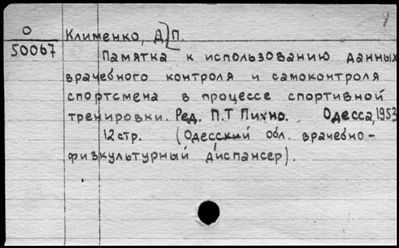 О
50067
Клименко, Д. П.
Памятка к использованию данных
врачебного контроля и самоконтроля
спортсмена в процессе спортивной
тренировки. Ред. П.Т Пихно. Одесса, 1953
12 стр. (Одесский обл. врачебно-
физкультурный диспансер).